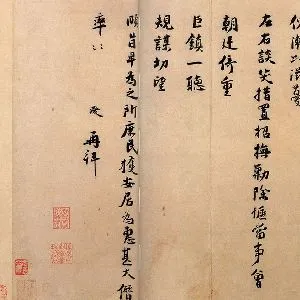 滋蔓
左右談笑措置招撫勦除惬當事會
朝廷倚重
巨鎮一聽
規謀切望
頤旨早為之所庶民獲安居為惠甚大僭
率 再拜